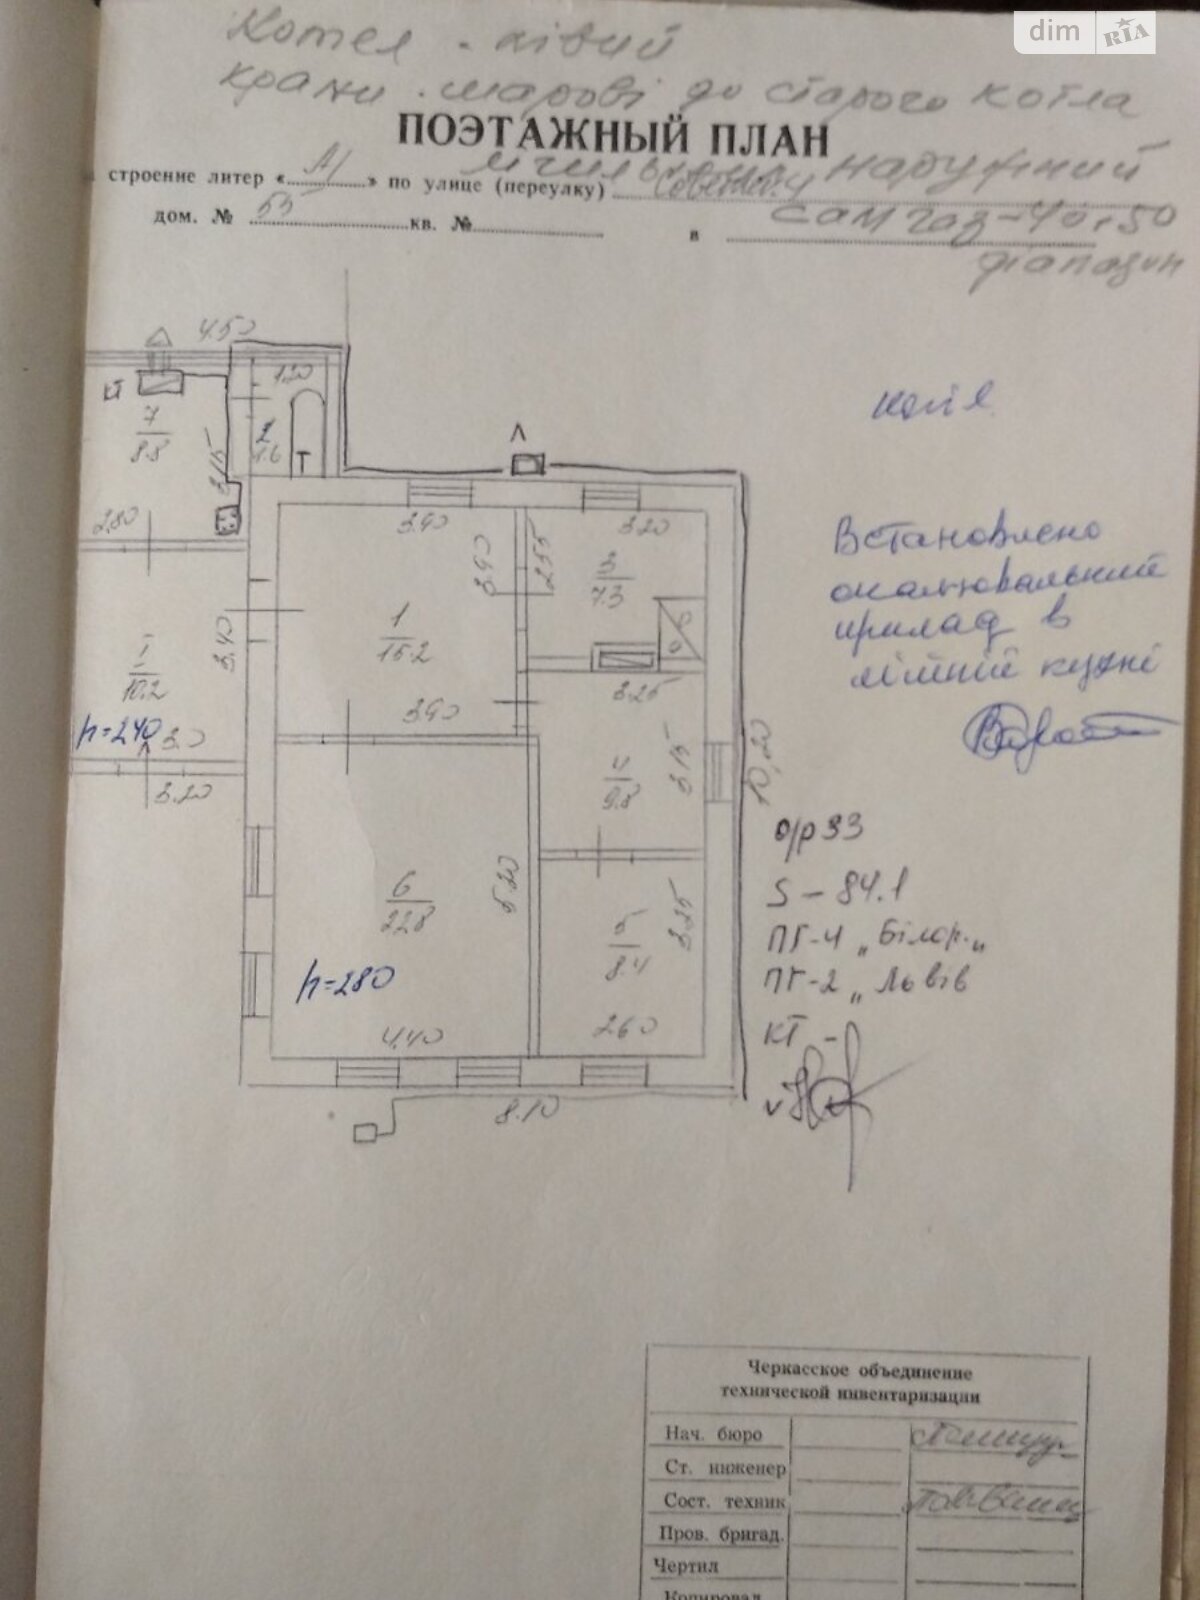 dim RIA
Котел - лівий
крани шарові до старого котла
ПОЭТАЖНЫЙ ПЛАН
строение литер « А1 » по улице (переулку)
наружний
дом. № 55 кв. №
в
сам газ-40÷50
діапазон
4.50
КТ
7
8.8
3.15
2.80
1.20
2
1.6
Т
3.90
3.90
2.55
3.20
3
7.3
1
15.2
3.90
3.25
3.40
I
10.2
h=240
3.0
3.20
4
9.8
3.15
10,20
6
22.8
5.20
5
8.4
3.25
h=280
4.40
2.60
8.10
Встановлено
опалювальний
прилад в
літній кухні
о/р 93
S - 84.1
ПГ-4 „Білор."
ПГ-2 „Львів
КТ -
Черкасское объединение
технической инвентаризации
Нач. бюро
Ст. инженер
Сост. техник
Пров. бригад.
Чертил
Копировал